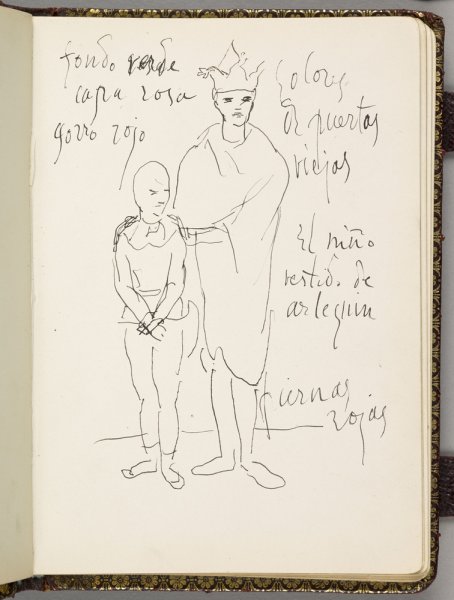 fondo verde
capa rosa
gorro rojo
Colores
de puertas
viejas
El niño
vestido de
arlequin
piernas
rojas